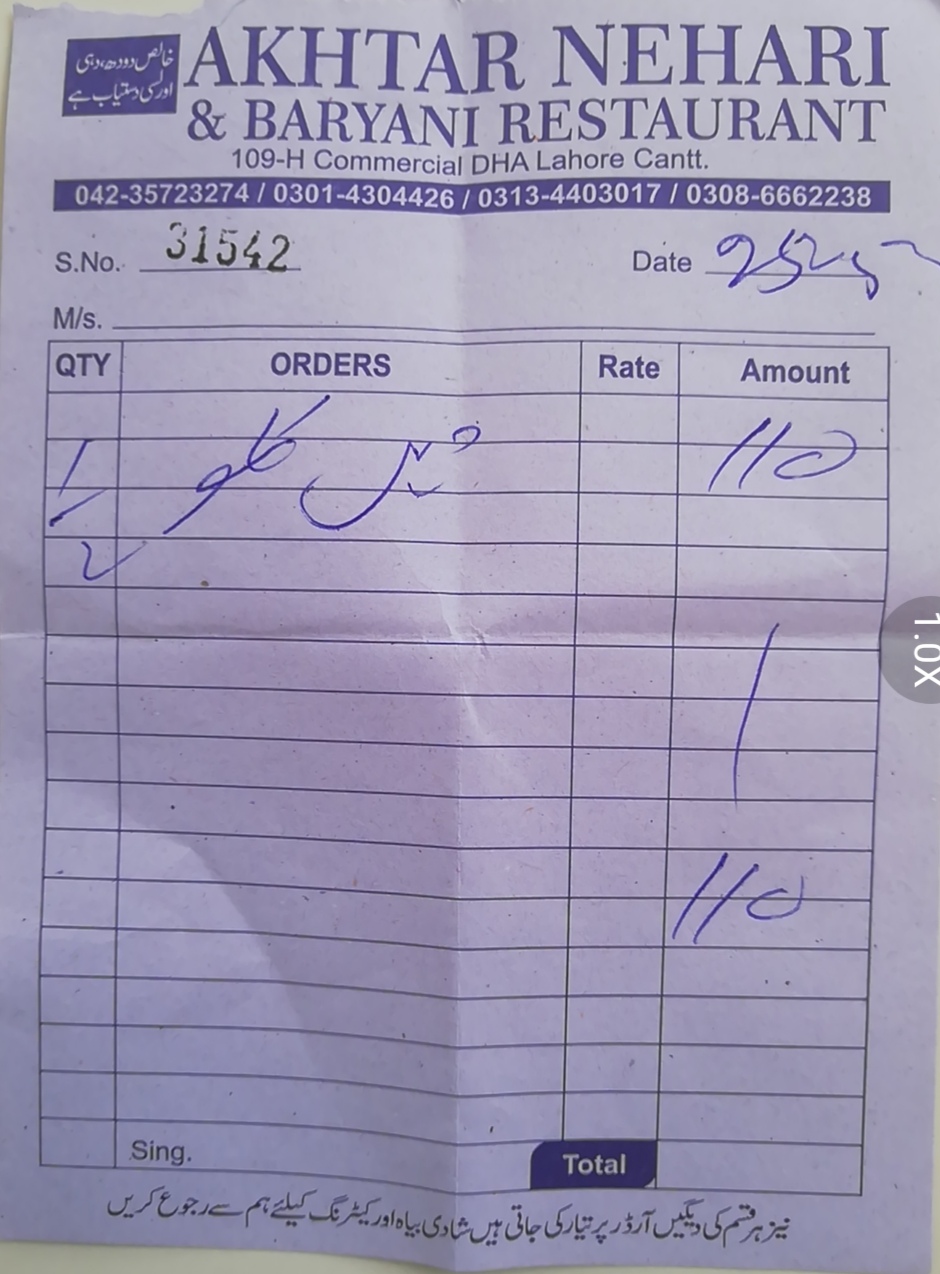 خالص دودھ، دہی
اور لسی دستیاب ہے
AKHTAR NEHARI
& BARYANI RESTAURANT
109-H Commercial DHA Lahore Cantt.
042-35723274 / 0301-4304426 / 0313-4403017 / 0308-6662238
S.No. 31542 Date
M/s.
QTY ORDERS Rate Amount
1/2 کلو 110
110
Sing. Total
نیز ہر قسم کی دیگیں آرڈر پر تیار کی جاتی ہیں شادی بیاہ اور کیٹرنگ کیلئے ہم سے رجوع کریں
1.0X